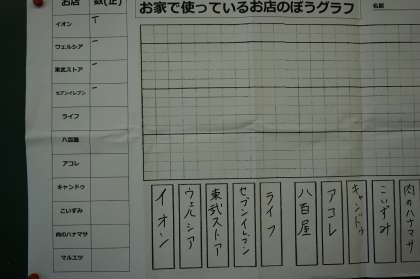 お店 数(正)
お家で使っているお店のぼうグラフ
名前
イオン T
ウェルシア 一
東武ストア 一
セブンイレブン 一
ライフ
八百屋
アコレ
キャンドゥ
こいずみ
肉のハナマサ
マルエツ
イオン
ウェルシア
東武ストア
セブンイレブン
ライフ
八百屋
アコレ
キャンドゥ
こいずみ
肉のハナマサ